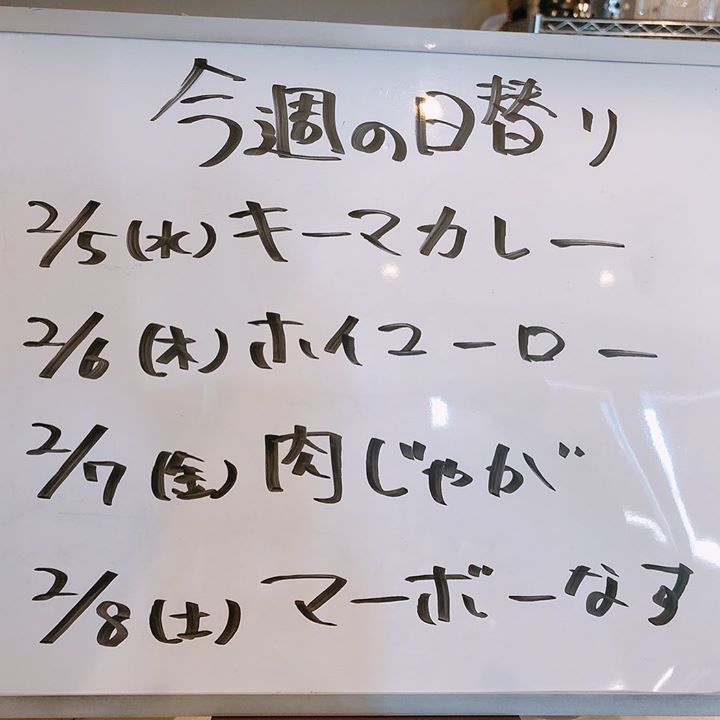 今週の日替り
2/5(水)キーマカレー
2/6(木)ホイコーロー
2/7(金)肉じゃが
2/8(土)マーボーなす